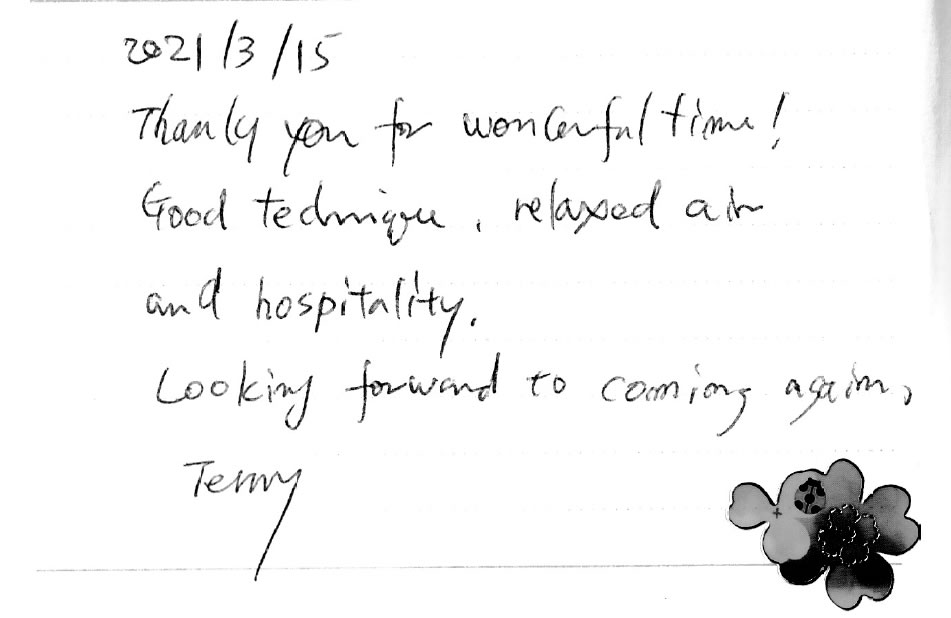 2021/3/15
Thank you for wonderful time!
Good technique, relaxed air
and hospitality.
Looking forward to coming again,